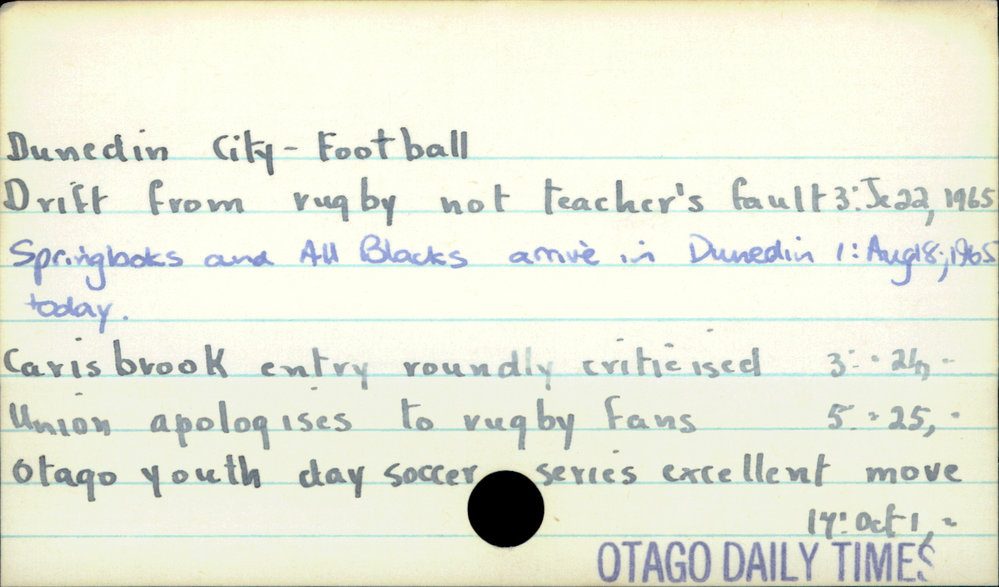 Dunedin City - Football
Drift from rugby not teacher's fault 3: Je 22, 1965
Springboks and All Blacks arrive in Dunedin 1: Aug 18, 1965
today.
Carisbrook entry roundly criticised 3: - 24, -
Union apologises to rugby fans 5: - 25, -
Otago youth day soccer series excellent move
17: Oct 1, -
OTAGO DAILY TIMES